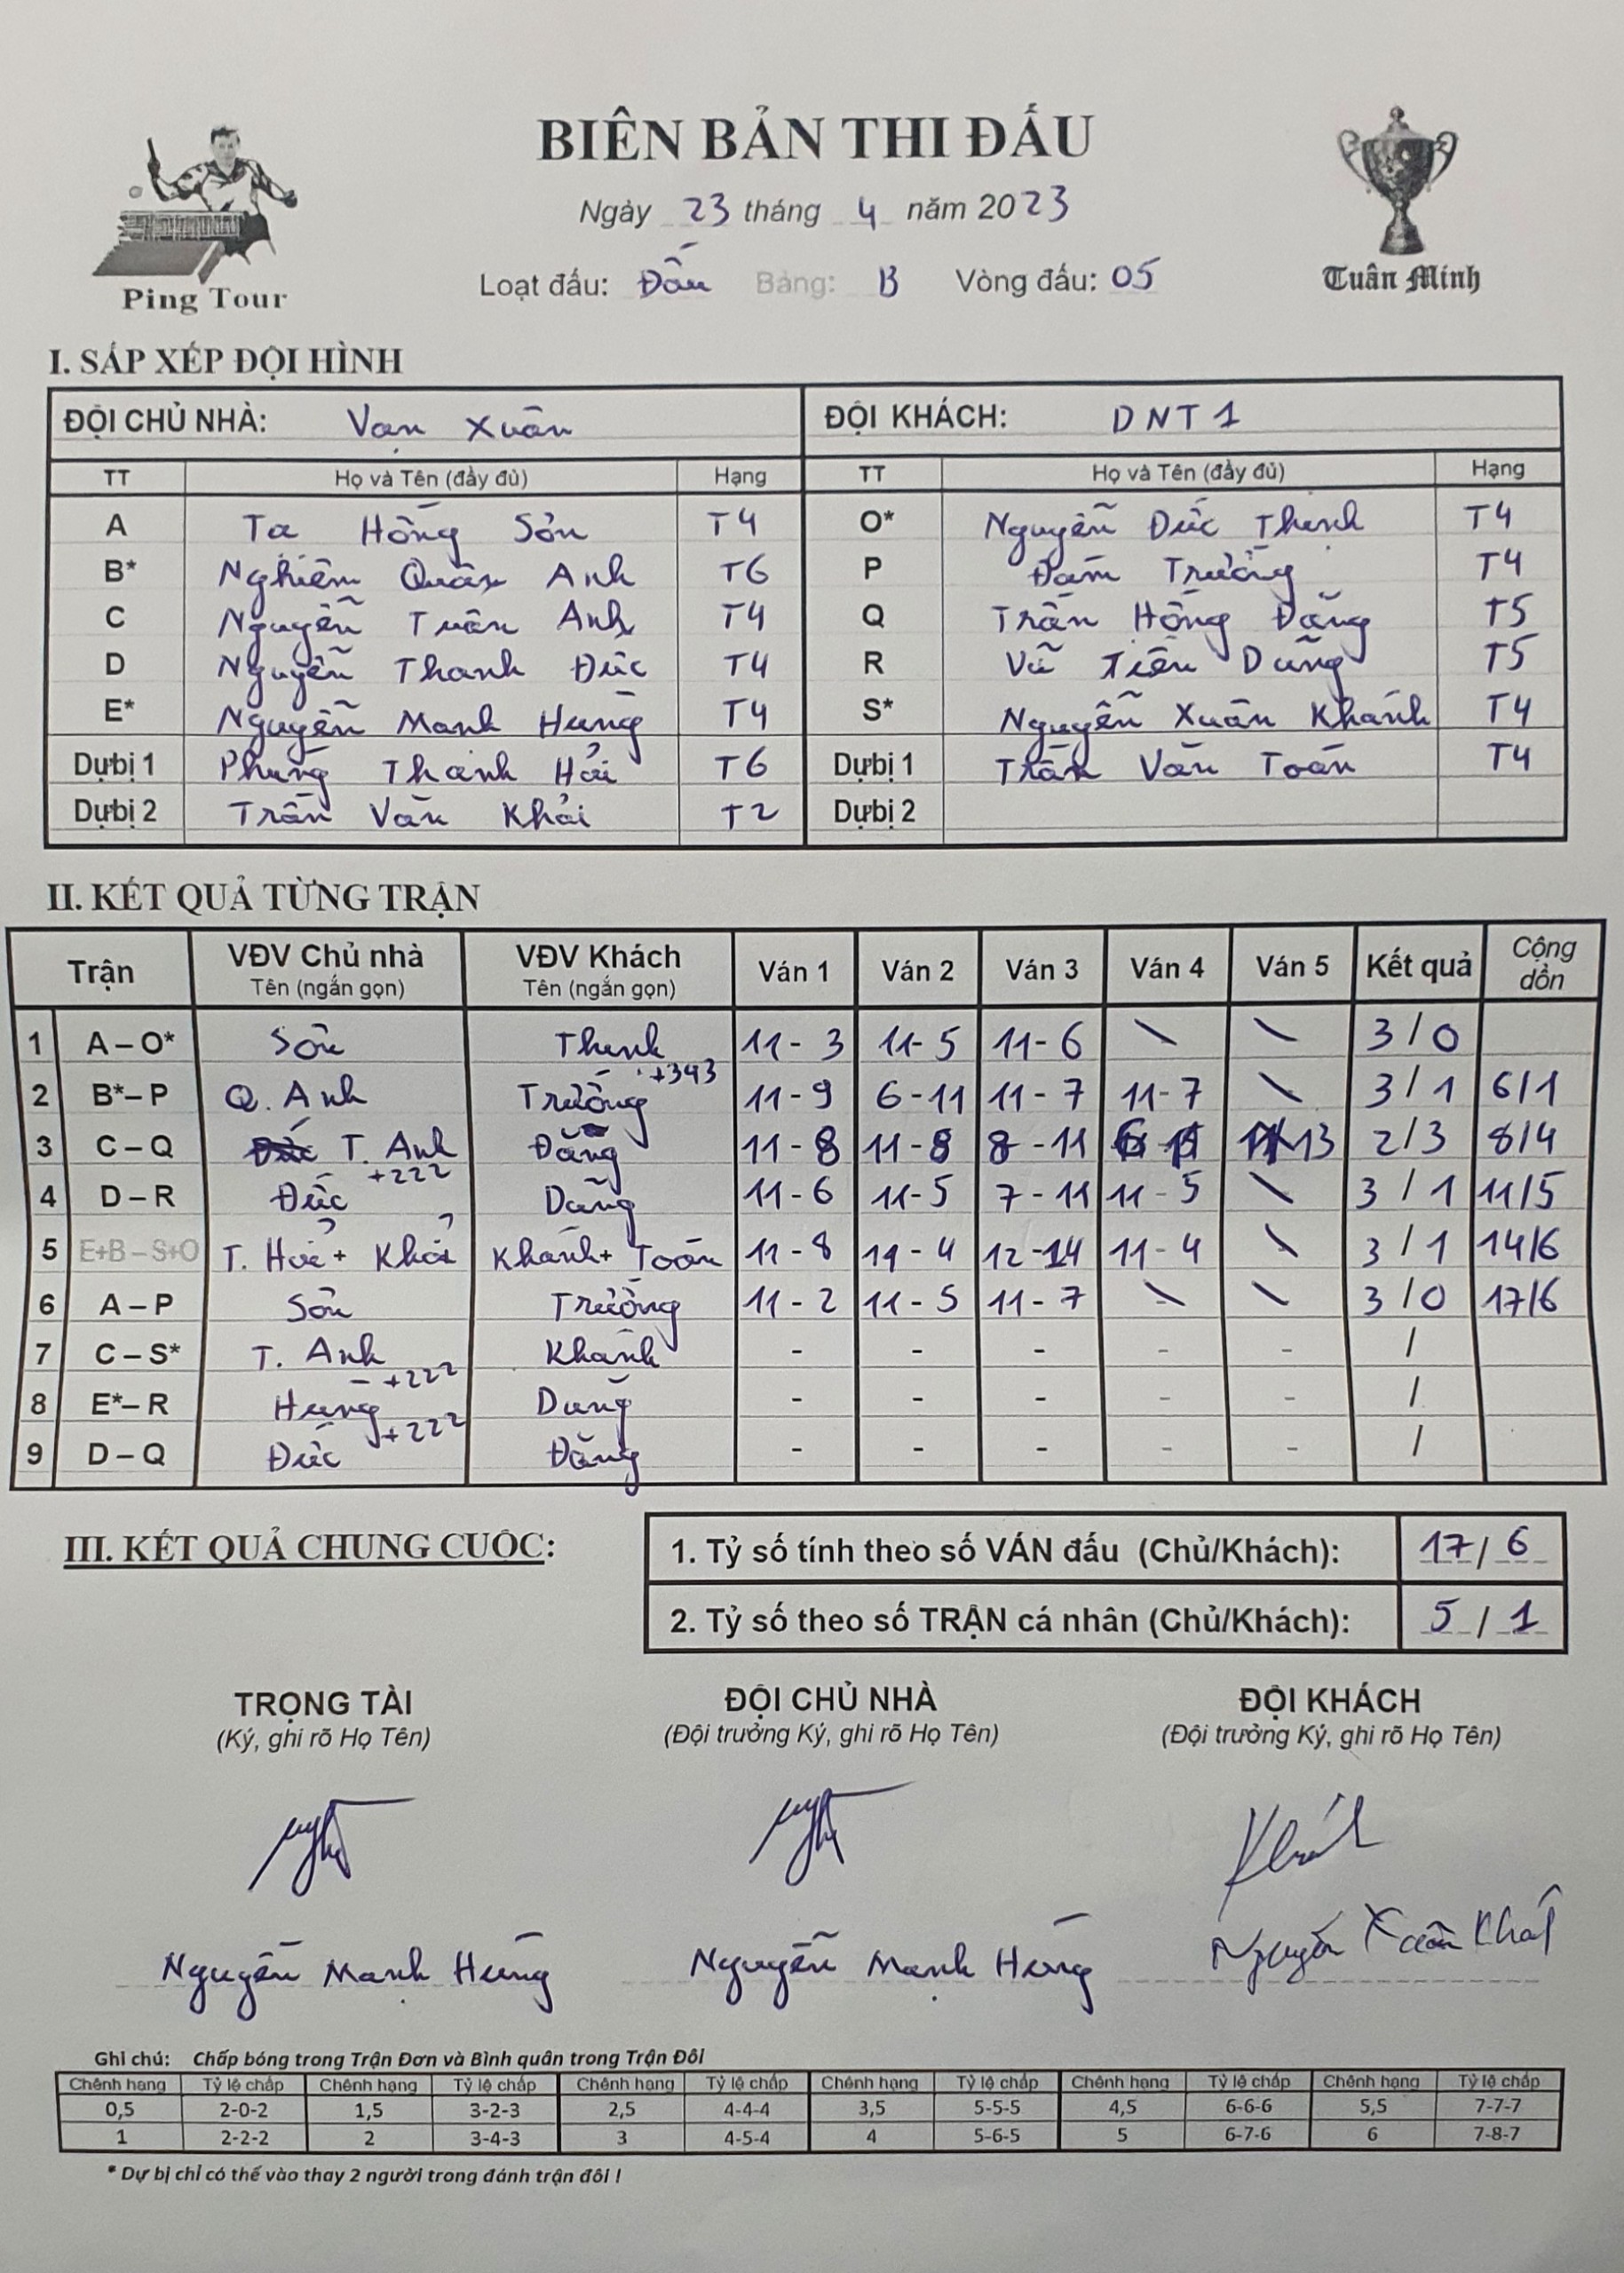 BIÊN BẢN THI ĐẤU
Ngày 23 tháng 4 năm 2023
Loạt đấu: Đấu Bảng: B Vòng đấu: 05
Ping Tour
Tuân Minh
I. SẮP XẾP ĐỘI HÌNH
ĐỘI CHỦ NHÀ: Vạn Xuân ĐỘI KHÁCH: DNT1
TT Họ và Tên (đầy đủ) Hạng TT Họ và Tên (đầy đủ) Hạng
A Tạ Hồng Sơn T4 O* Nguyễn Đức Thịnh T4
B* Nghiêm Quân Anh T6 P Đàm Trường T4
C Nguyễn Tuân Anh T4 Q Trần Hồng Đăng T5
D Nguyễn Thanh Đức T4 R Vũ Tiên Dũng T5
E* Nguyễn Manh Hưng T4 S* Nguyễn Xuân Khánh T4
Dự bị 1 Phùng Thanh Hải T6 Dự bị 1 Trần Văn Toán T4
Dự bị 2 Trần Văn Khải T2 Dự bị 2
II. KẾT QUẢ TỪNG TRẬN
Trận VĐV Chủ nhà VĐV Khách Ván 1 Ván 2 Ván 3 Ván 4 Ván 5 Kết quả Cộng dồn
Tên (ngắn gọn) Tên (ngắn gọn)
1 A – O* Sơn Thịnh 11 - 3 11 - 5 11 - 6 \ \ 3 / 0
+343
2 B* – P Q. Anh Trường 11 - 9 6 - 11 11 - 7 11 - 7 \ 3 / 1 6/1
3 C – Q T. Anh Đăng 11 - 8 11 - 8 8 - 11 13 2/3 8/4
+222
4 D – R Đức Dũng 11 - 6 11 - 5 7 - 11 11 - 5 \ 3 / 1 11/5
5 E+B – S+O T. Hải + Khải Khánh + Toán 11 - 8 11 - 4 12 - 14 11 - 4 \ 3 / 1 14/6
6 A – P Sơn Trường 11 - 2 11 - 5 11 - 7 \ \ 3 / 0 17/6
7 C – S* T. Anh Khánh - - - - - /
+222
8 E* – R Hưng Dũng - - - - - /
+222
9 D – Q Đức Đăng - - - - - /
III. KẾT QUẢ CHUNG CUỘC:
1. Tỷ số tính theo số VÁN đấu (Chủ/Khách): 17 / 6
2. Tỷ số theo số TRẬN cá nhân (Chủ/Khách): 5 / 1
TRỌNG TÀI ĐỘI CHỦ NHÀ ĐỘI KHÁCH
(Ký, ghi rõ Họ Tên) (Đội trưởng Ký, ghi rõ Họ Tên) (Đội trưởng Ký, ghi rõ Họ Tên)
Nguyễn Mạnh Hưng Nguyễn Mạnh Hưng Nguyễn Xuân Khánh
Ghi chú: Chấp bóng trong Trận Đơn và Bình quân trong Trận Đôi
Chênh hạng Tỷ lệ chấp Chênh hạng Tỷ lệ chấp Chênh hạng Tỷ lệ chấp Chênh hạng Tỷ lệ chấp Chênh hạng Tỷ lệ chấp Chênh hạng Tỷ lệ chấp
0,5 2-0-2 1,5 3-2-3 2,5 4-4-4 3,5 5-5-5 4,5 6-6-6 5,5 7-7-7
1 2-2-2 2 3-4-3 3 4-5-4 4 5-6-5 5 6-7-6 6 7-8-7
* Dự bị chỉ có thể vào thay 2 người trong đánh trận đôi !